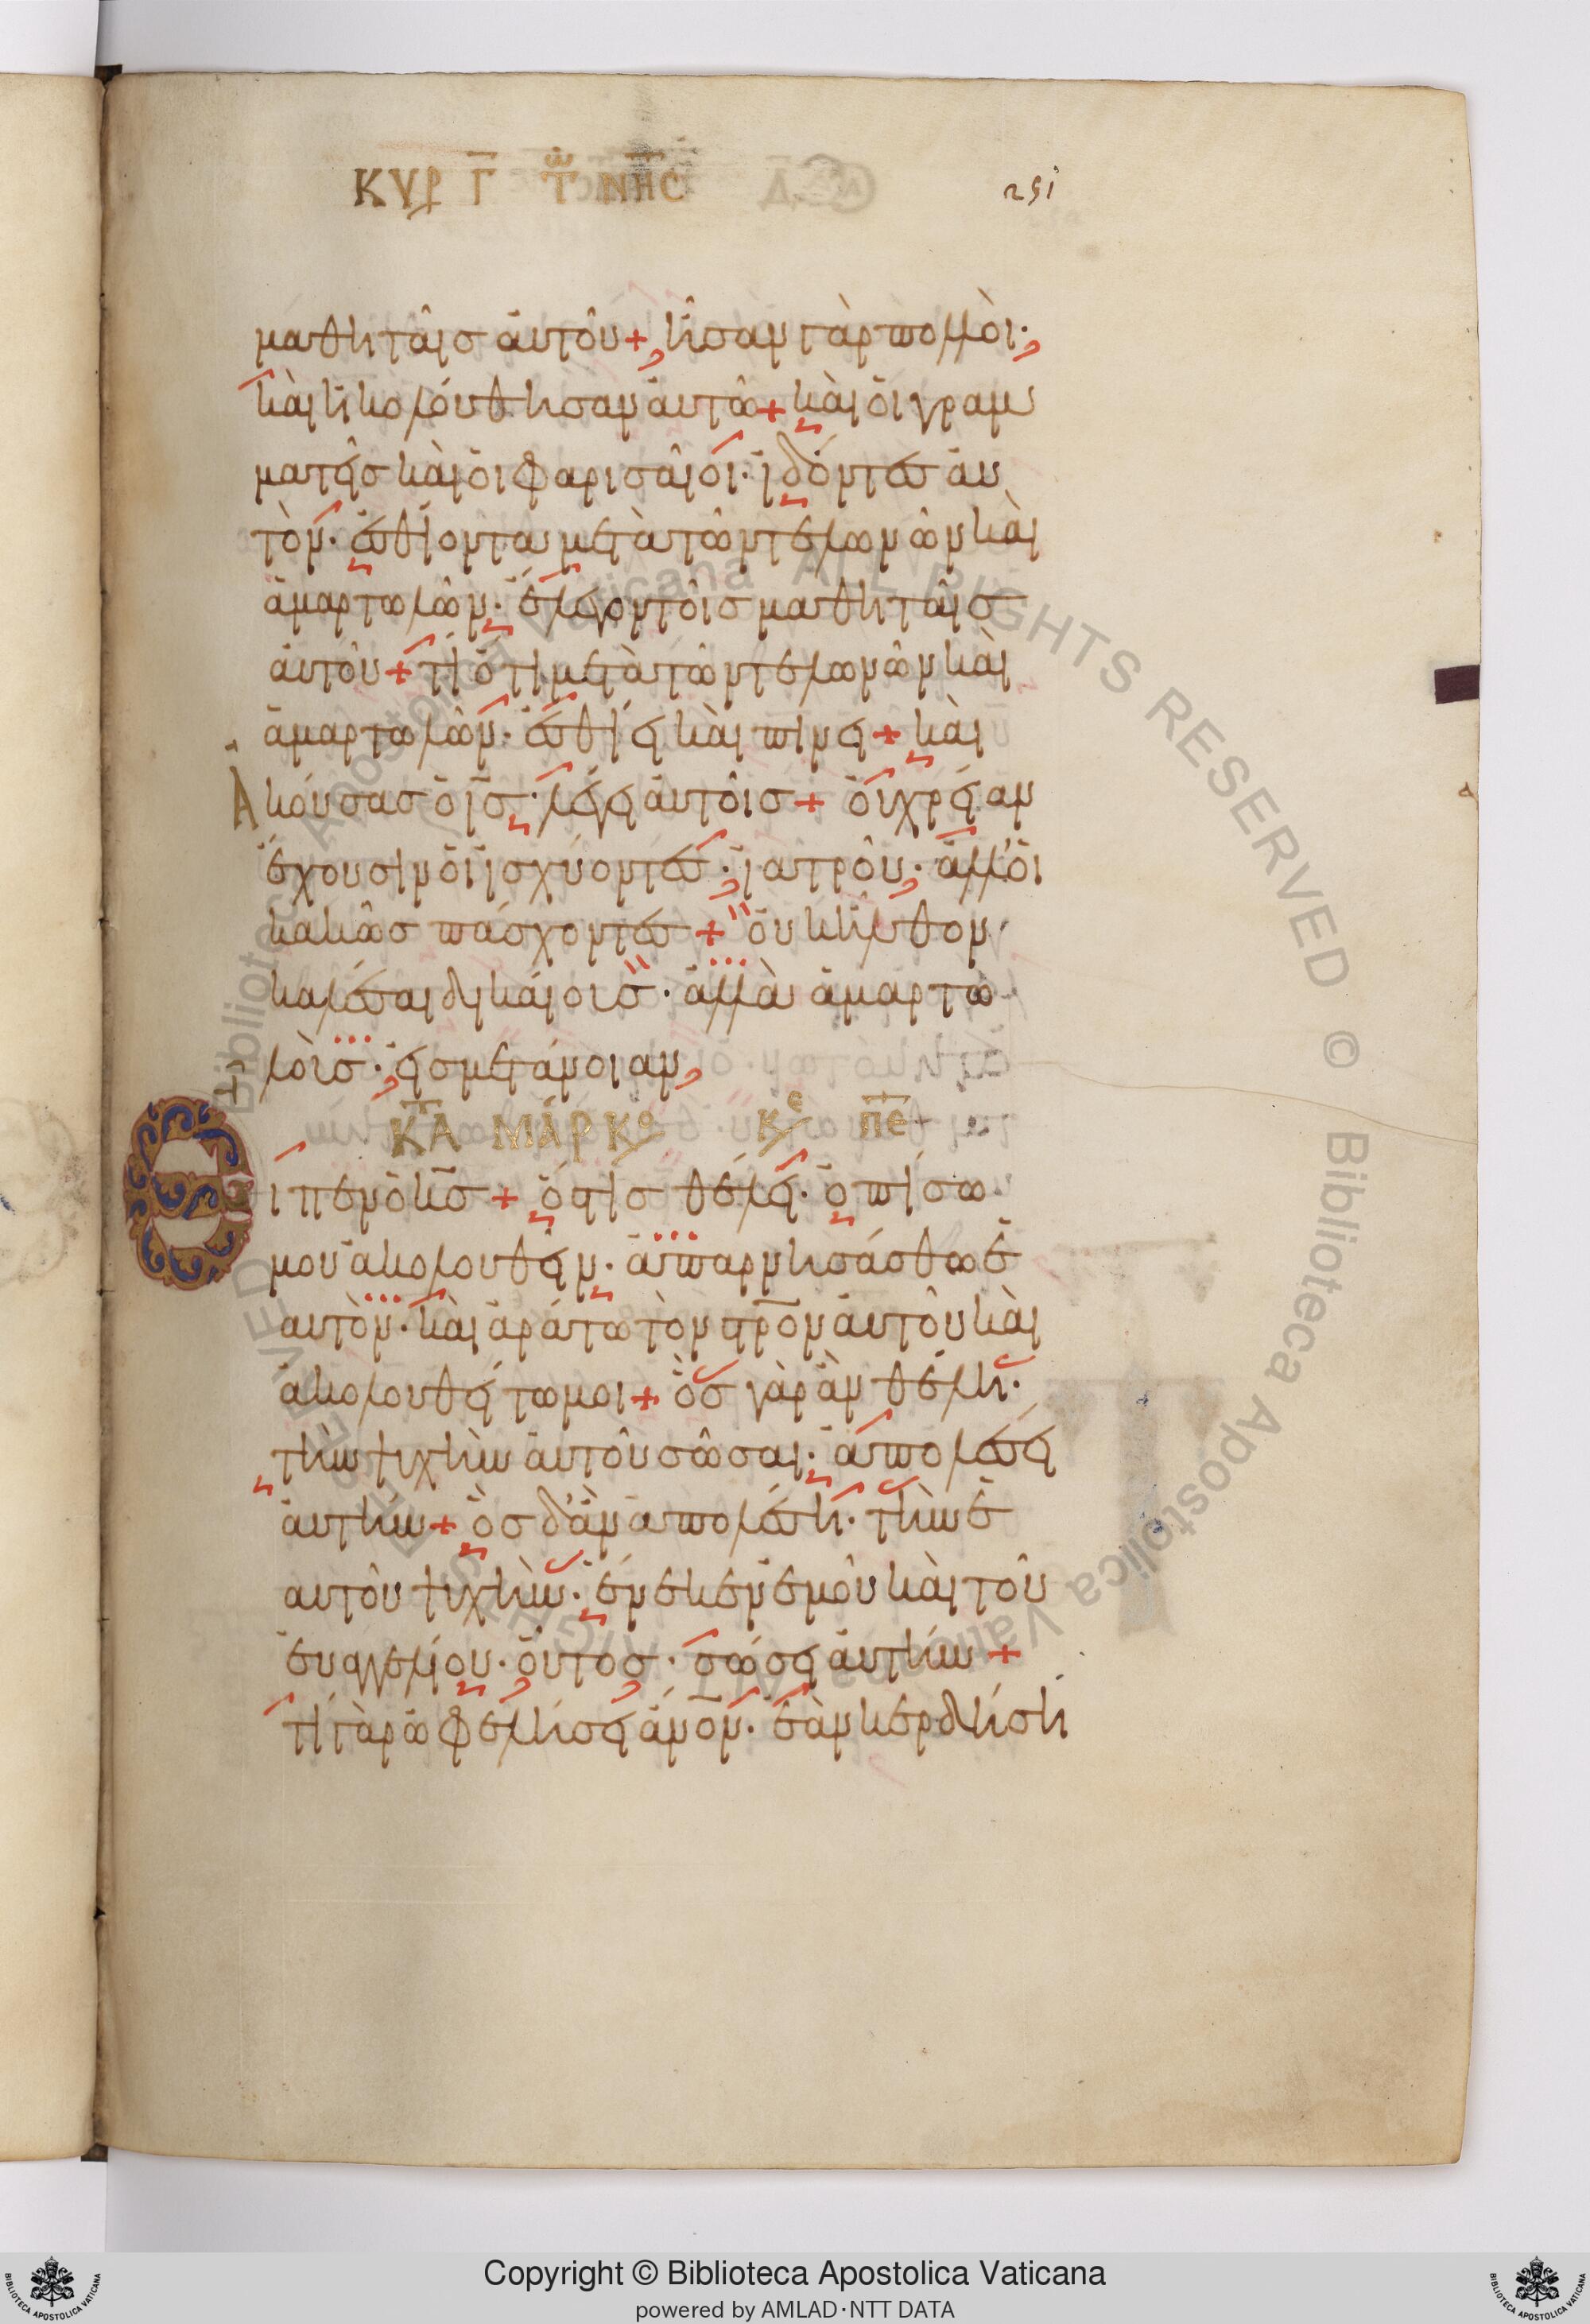 ΚΥΡ Γ̅ ΤῶΝ ΝΗΣ
251
μαθηταῖς αὐτοῦ + ἦσαν γὰρ πολλοὶ·
καὶ ἠκολούθησαν αὐτῶ + καὶ οἱ γραμ
ματεῖς καὶ οἱ φαρισαῖοι· ἰδόντες αὐ
τὸν· ἐσθίοντα μετὰ τῶν τελωνῶν καὶ
ἁμαρτωλῶν· ἔλεγον τοῖς μαθηταῖς
αὐτοῦ + τί ὅτι μετὰ τῶν τελωνῶν καὶ
ἁμαρτωλῶν· ἐσθίει καὶ πίνει + καὶ
Ἀκούσας ὁ ις̅· λέγει αὐτοῖς + οὐ χρείαν
ἔχουσιν οἱ ἰσχύοντες· ἰατροῦ· ἀλλ' οἱ
κακῶς πάσχοντες + οὐκ ἦλθον
καλέσαι δικαίους· ἀλλὰ ἁμαρτω
λοὺς· εἰς μετάνοιαν
ΚΤΑ ΜΑΡΚΟ ΚΕ ΠΕ
Εἶπεν ὁ κς̅ + ὅστις θέλει· ὀπίσω
μου ἀκολουθεῖν· ἀπαρνησάσθω ἑ
αυτὸν· καὶ ἀράτω τὸν στρο̅ν αὐτοῦ καὶ
ἀκολουθείτω μοι + ὃς γὰρ ἂν θέλη·
τὴν ψυχὴν αὐτοῦ σῶσαι· ἀπολέσει
αὐτήν + ὃς δ' ἂν ἀπολέση· τὴν ἑ
αυτοῦ ψυχὴν· ἕνεκεν ἐμοῦ καὶ τοῦ
εὐαγγελίου· οὗτος· σώσει αὐτήν +
τί γὰρ ὠφελήσει ἄνο̅ν· ἐὰν κερδήση
Copyright © Biblioteca Apostolica Vaticana
powered by AMLAD·NTT DATA